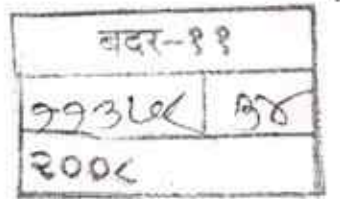 बदर-११
११३५८ ३४
२००८